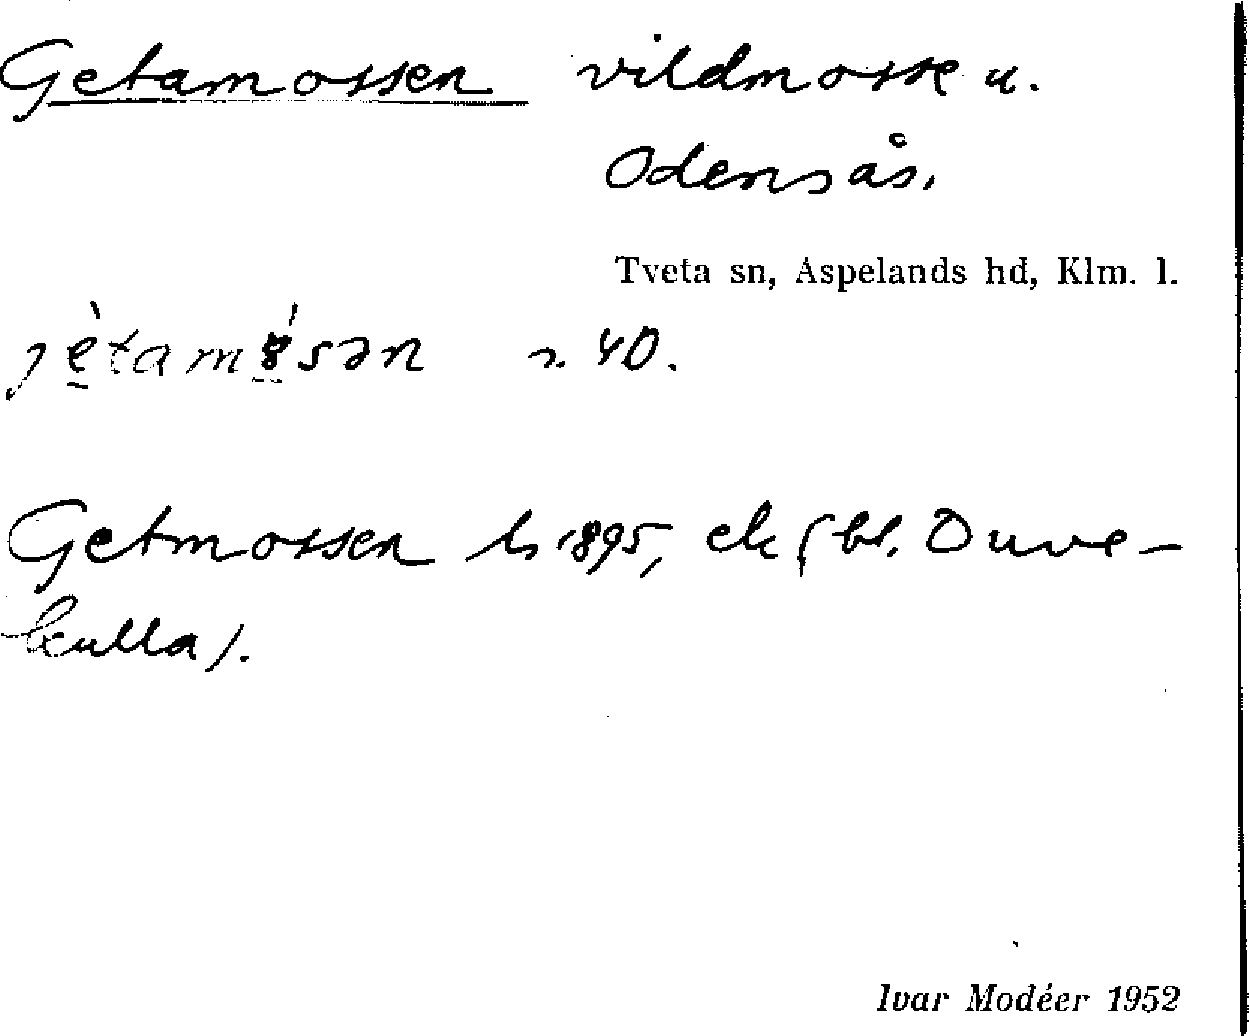 Getamossen vildmosse u.
Odensås.
Tveta sn, Aspelands hd, Klm. l.
40.
Getmossen 1895, ek (bl. Duve-
kulla).
Ivar Modéer 1952